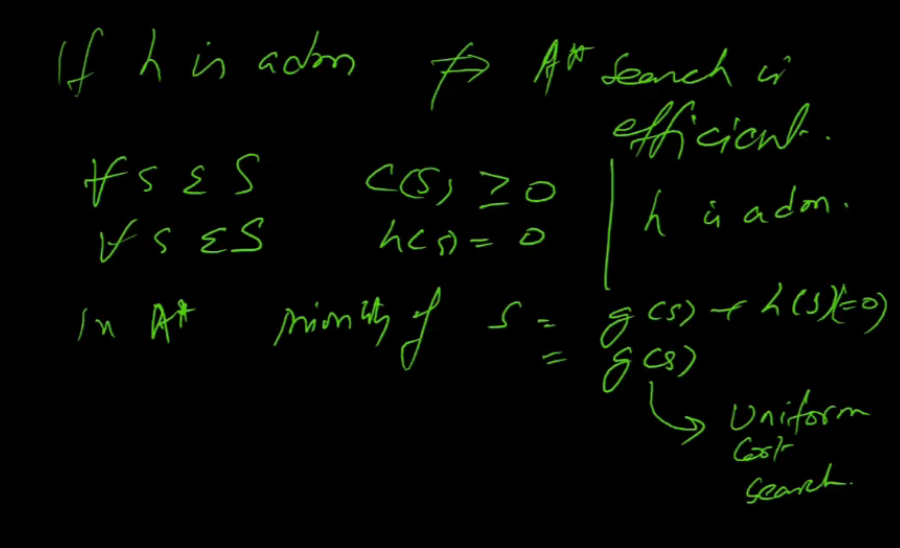 If h is adm ⇏ A* search is
efficient.
∀ s ε S c(s) ≥ 0
∀ s ε S h(s) = 0
h is adm.
In A* priority of s = g(s) + h(s)(=0)
= g(s)
Uniform
Cost
Search.